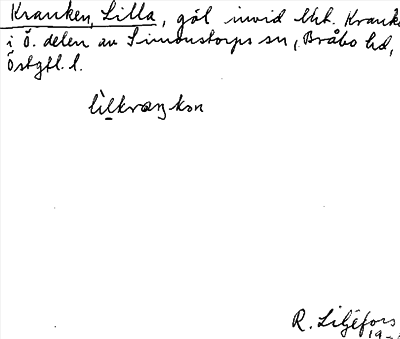 Kranken, Lilla, göl invid Uht. Krank
i ö. delen av Simonstorps sn, Bråbo hd,
Östgtl. l.
lìlkraŋkən
R. Liljefors
19